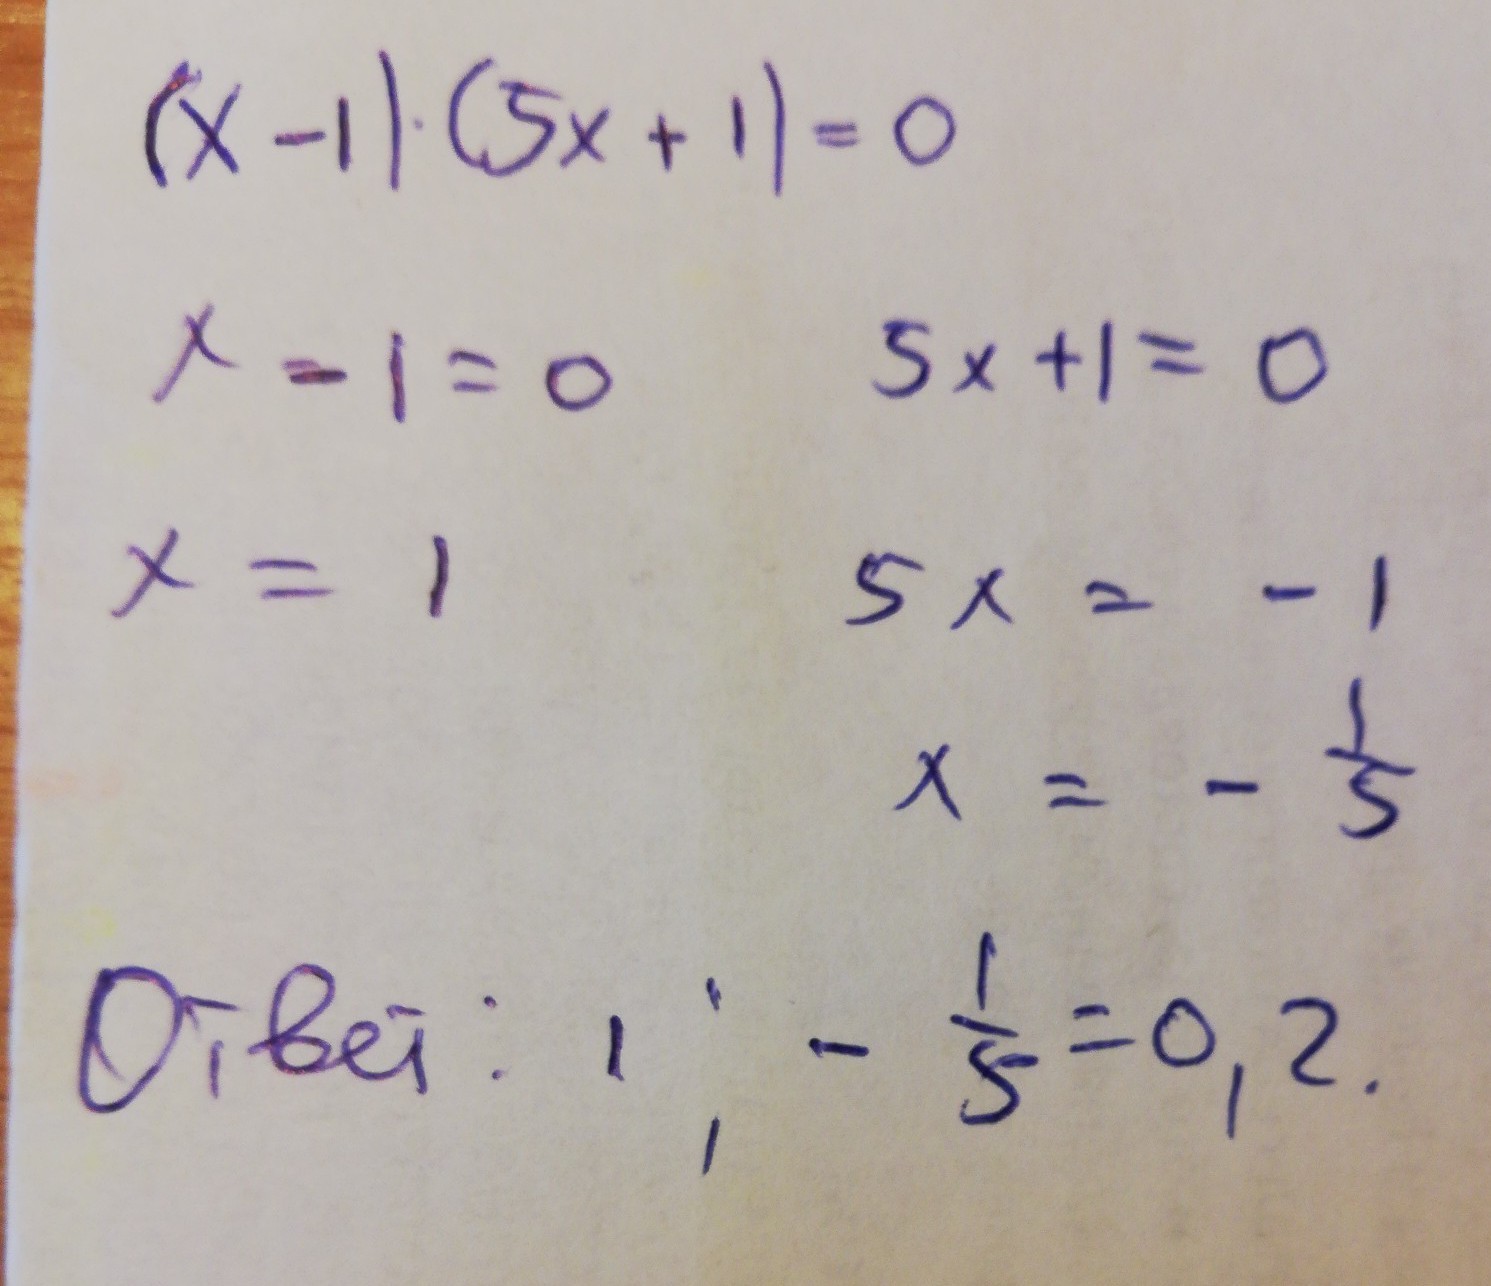 (x - 1) · (5x + 1) = 0
x - 1 = 0 5x + 1 = 0
x = 1 5x = - 1
x = - 1/5
Ответ: 1 ; - 1/5 = 0,2.